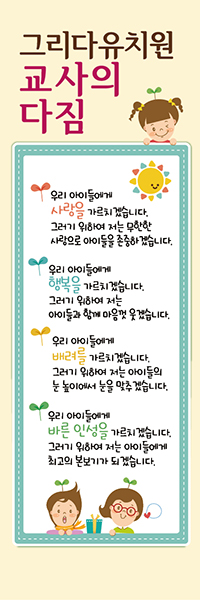 그리다유치원
교사의
다짐
우리 아이들에게
사랑을 가르치겠습니다.
그러기 위하여 저는 무한한
사랑으로 아이들을 존중하겠습니다.
우리 아이들에게
행복을 가르치겠습니다.
그러기 위하여 저는
아이들과 함께 마음껏 웃겠습니다.
우리 아이들에게
배려를 가르치겠습니다.
그러기 위하여 저는 아이들의
눈 높이에서 눈을 맞추겠습니다.
우리 아이들에게
바른 인성을 가르치겠습니다.
그러기 위하여 저는 아이들에게
최고의 본보기가 되겠습니다.